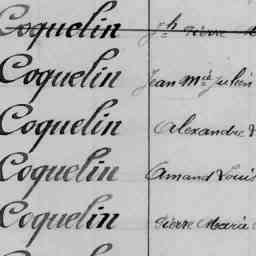 Coquelin Jh Pierre
Coquelin Jean Mie Julien
Coquelin Alexandre
Coquelin Amand Louis
Coquelin Pierre Marie